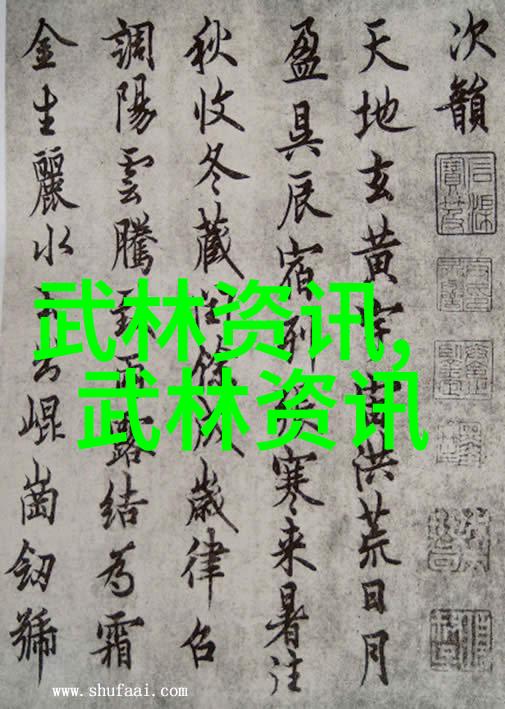 次韻
天地玄黄宇宙洪荒日月
盈昃辰宿列張寒来暑往
秋收冬藏閏餘成歲律召
調陽雲騰致雨露結為霜
金生麗水玉出崐崗劒號
武林资讯,
武林资讯
www.shufaai.com